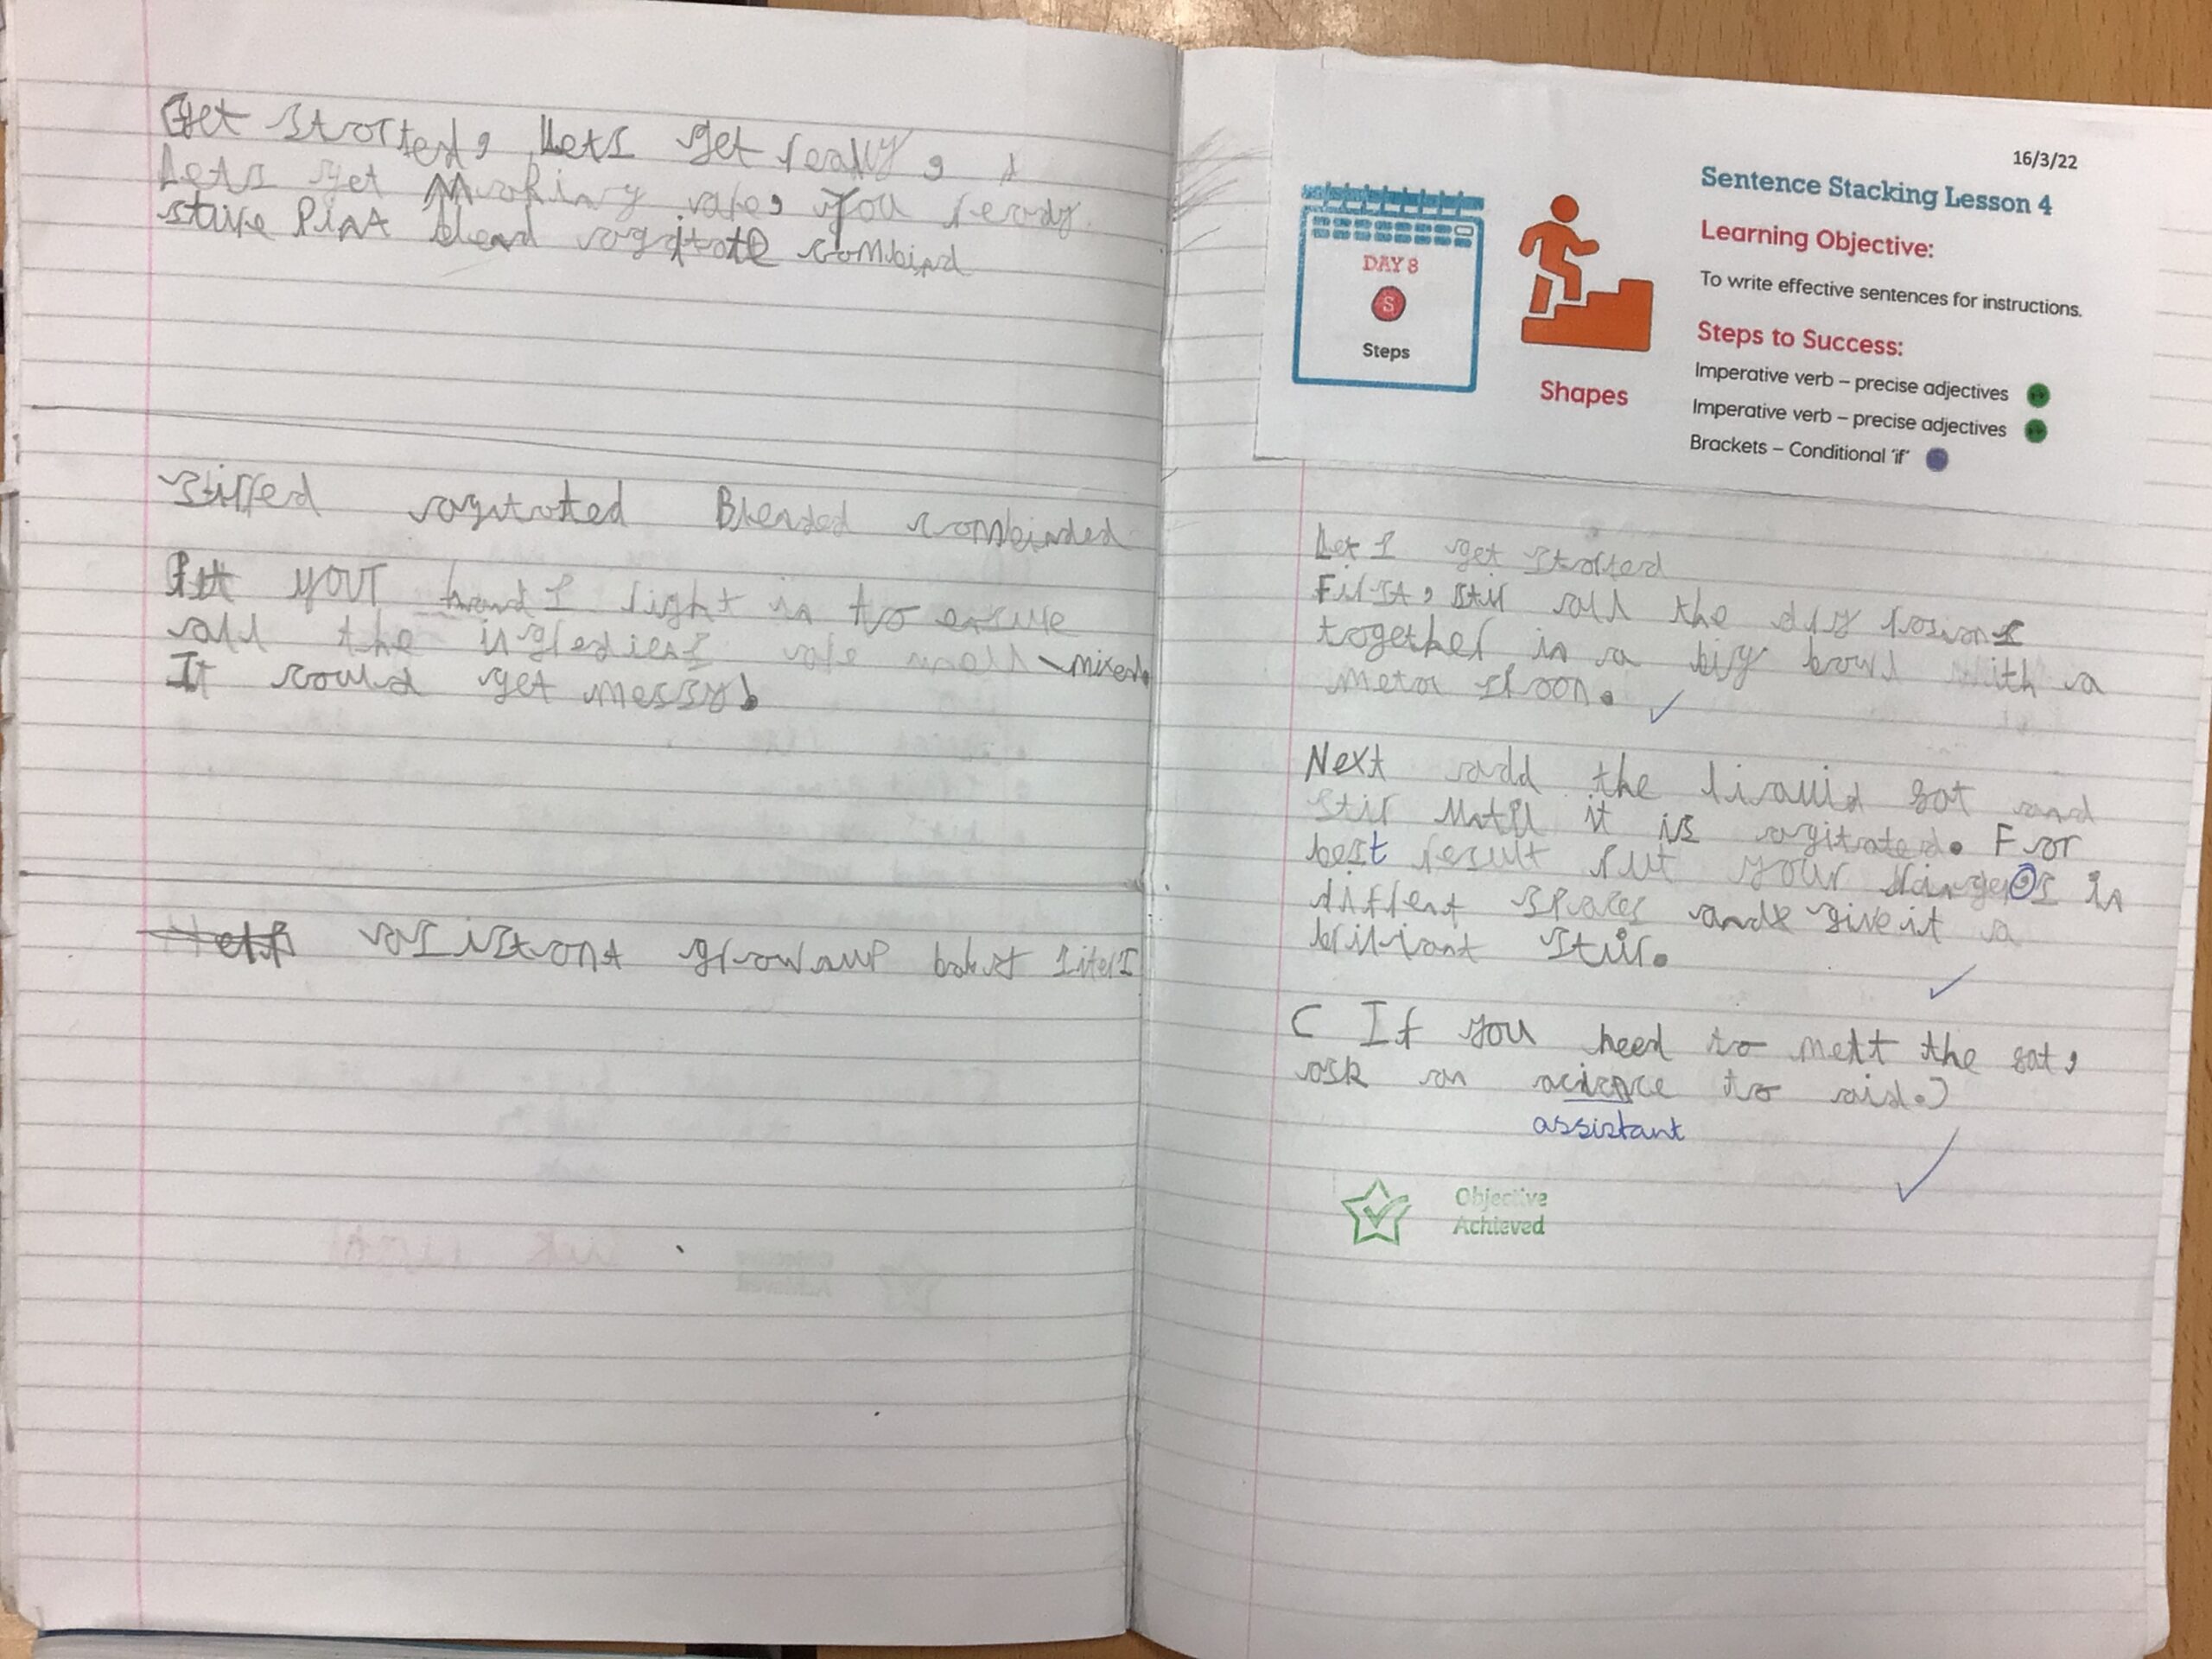 Get started, Lets get ready,
Lets get Making are, you ready.
stire Pint blend agitate combind
Stirred agitated Blended combinded
Put your hands right in to ensure
all the ingrediens are well mixed.
It could get messy!
Help asistant grownup baket sisters
16/3/22
Sentence Stacking Lesson 4
Learning Objective:
To write effective sentences for instructions.
Steps to Success:
Imperative verb – precise adjectives
Imperative verb – precise adjectives
Brackets – Conditional 'if'
DAY 8
S
Steps
Shapes
Lets get started
First, stir all the dry
together in a big bowl with a
metal spoon.
Next add the liquid fat and
stir until it is agitated. For
best result put your fingers in
diffrent spaces and give it a
briliant stir.
( If you need to melt the fat,
ask an to aid.)
assistant
Objective
Achieved